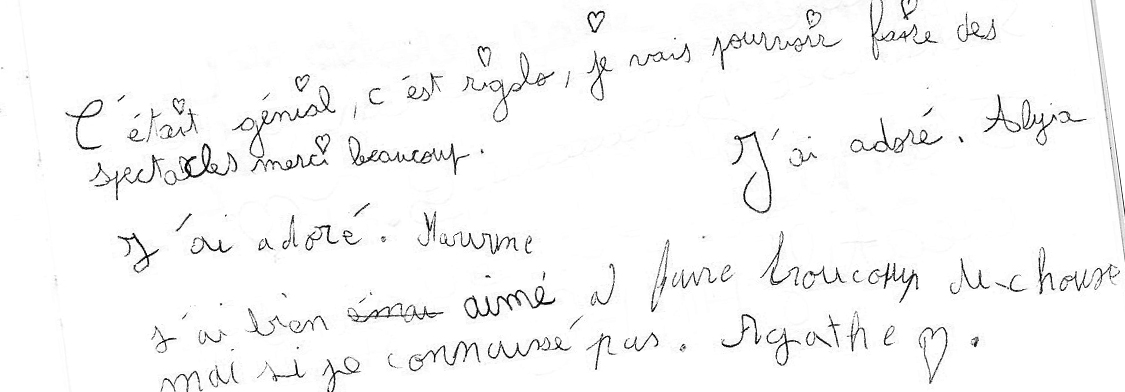 C'était génial, c'est rigolo, je vais pourvoir faire des
spectacles merci beaucoup.
J'ai adoré. Alyia
J'ai adoré. Maurine
J'ai bien aimé a faire broucoup de chouse
mai si je connaissé pas. Agathe